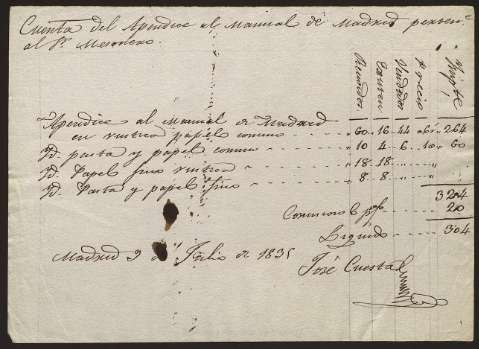 Cuenta del Apendice al Manual de Madrid
al Sr. Mesonero.
Recividos Existen Vendidos Precio Rs. vn.
Apendice al Manual de Madrid
en rustica papel comun 60 16 44 a 6 rs. 264
Yd. pasta y papel comun 10 4 6 10 60
Yd. Papel fino rustica 18 18
Yd. Pasta y papel fino 8 8
324
Comision 6 p% 20
Liquido 304
Madrid 9 de Julio de 1835
José Cuesta